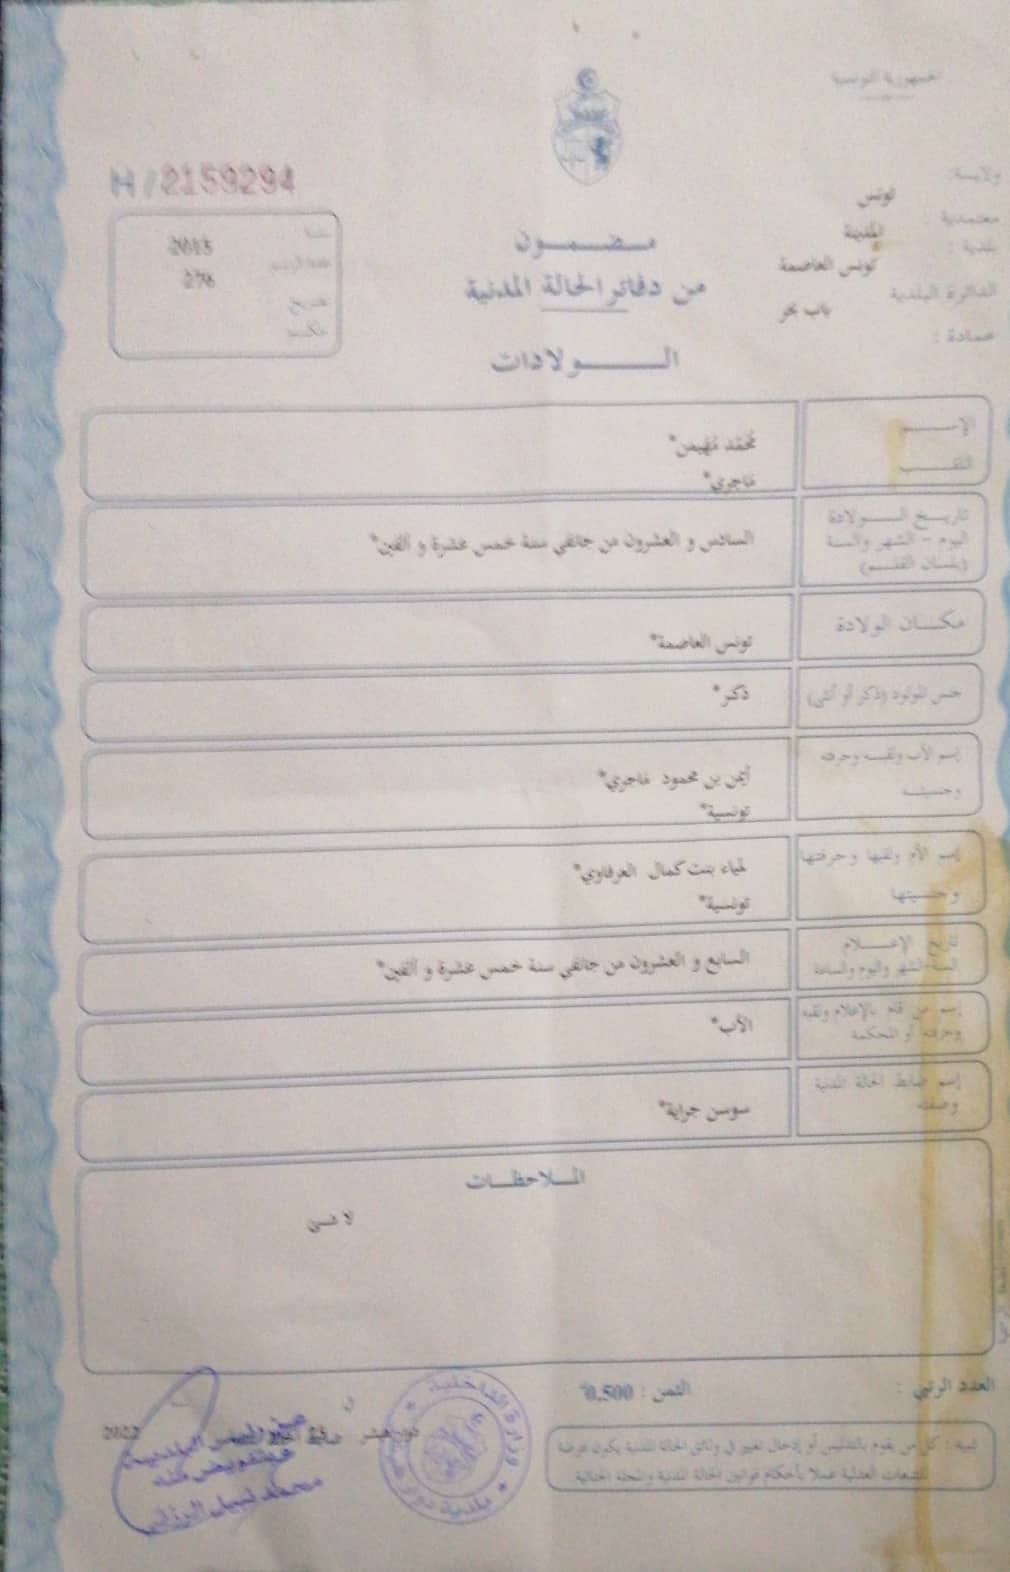 الجمهورية التونسية
ولاية: تونس
معتمدية : المدينة
بلدية : تونس العاصمة
الدائرة البلدية باب بحر
عمادة :
H/2159294
سنة 2015
عدد الرسم 276
بتاريخ
مضمون
من دفاتر الحالة المدنية
الولادات
الإسم محمد مهيمن*
اللقب ماجري*
تاريخ الولادة
اليوم - الشهر والسنة
(بلسان القلم)
السادس و العشرون من جانفي سنة خمس عشرة و ألفين*
مكان الولادة تونس العاصمة*
جنس المولود (ذكر أو أنثى) ذكر*
إسم الأب ولقبه وحرفته
وجنسيته
أيمن بن محمود ماجري*
تونسية*
إسم الأم ولقبها وحرفتها
وجنسيتها
لمياء بنت كمال العرفاوي*
تونسية*
تاريخ الإعلام
السنة الشهر واليوم والساعة
السابع و العشرون من جانفي سنة خمس عشرة و ألفين*
إسم من قام بالإعلام ولقبه
وحرفته أو المحكمة
الأب*
إسم ضابط الحالة المدنية
وصفته
سوسن جراية*
الملاحظات
لا شئ
العدد الرتبي :
الثمن : 0.500
تنبيه : كل من يقوم بالتدليس أو إدخال تغيير في وثائق الحالة المدنية يكون عرضة
للتتبعات العدلية عملا بأحكام قوانين الحالة المدنية والمجلة الجنائية
وزارة الداخلية